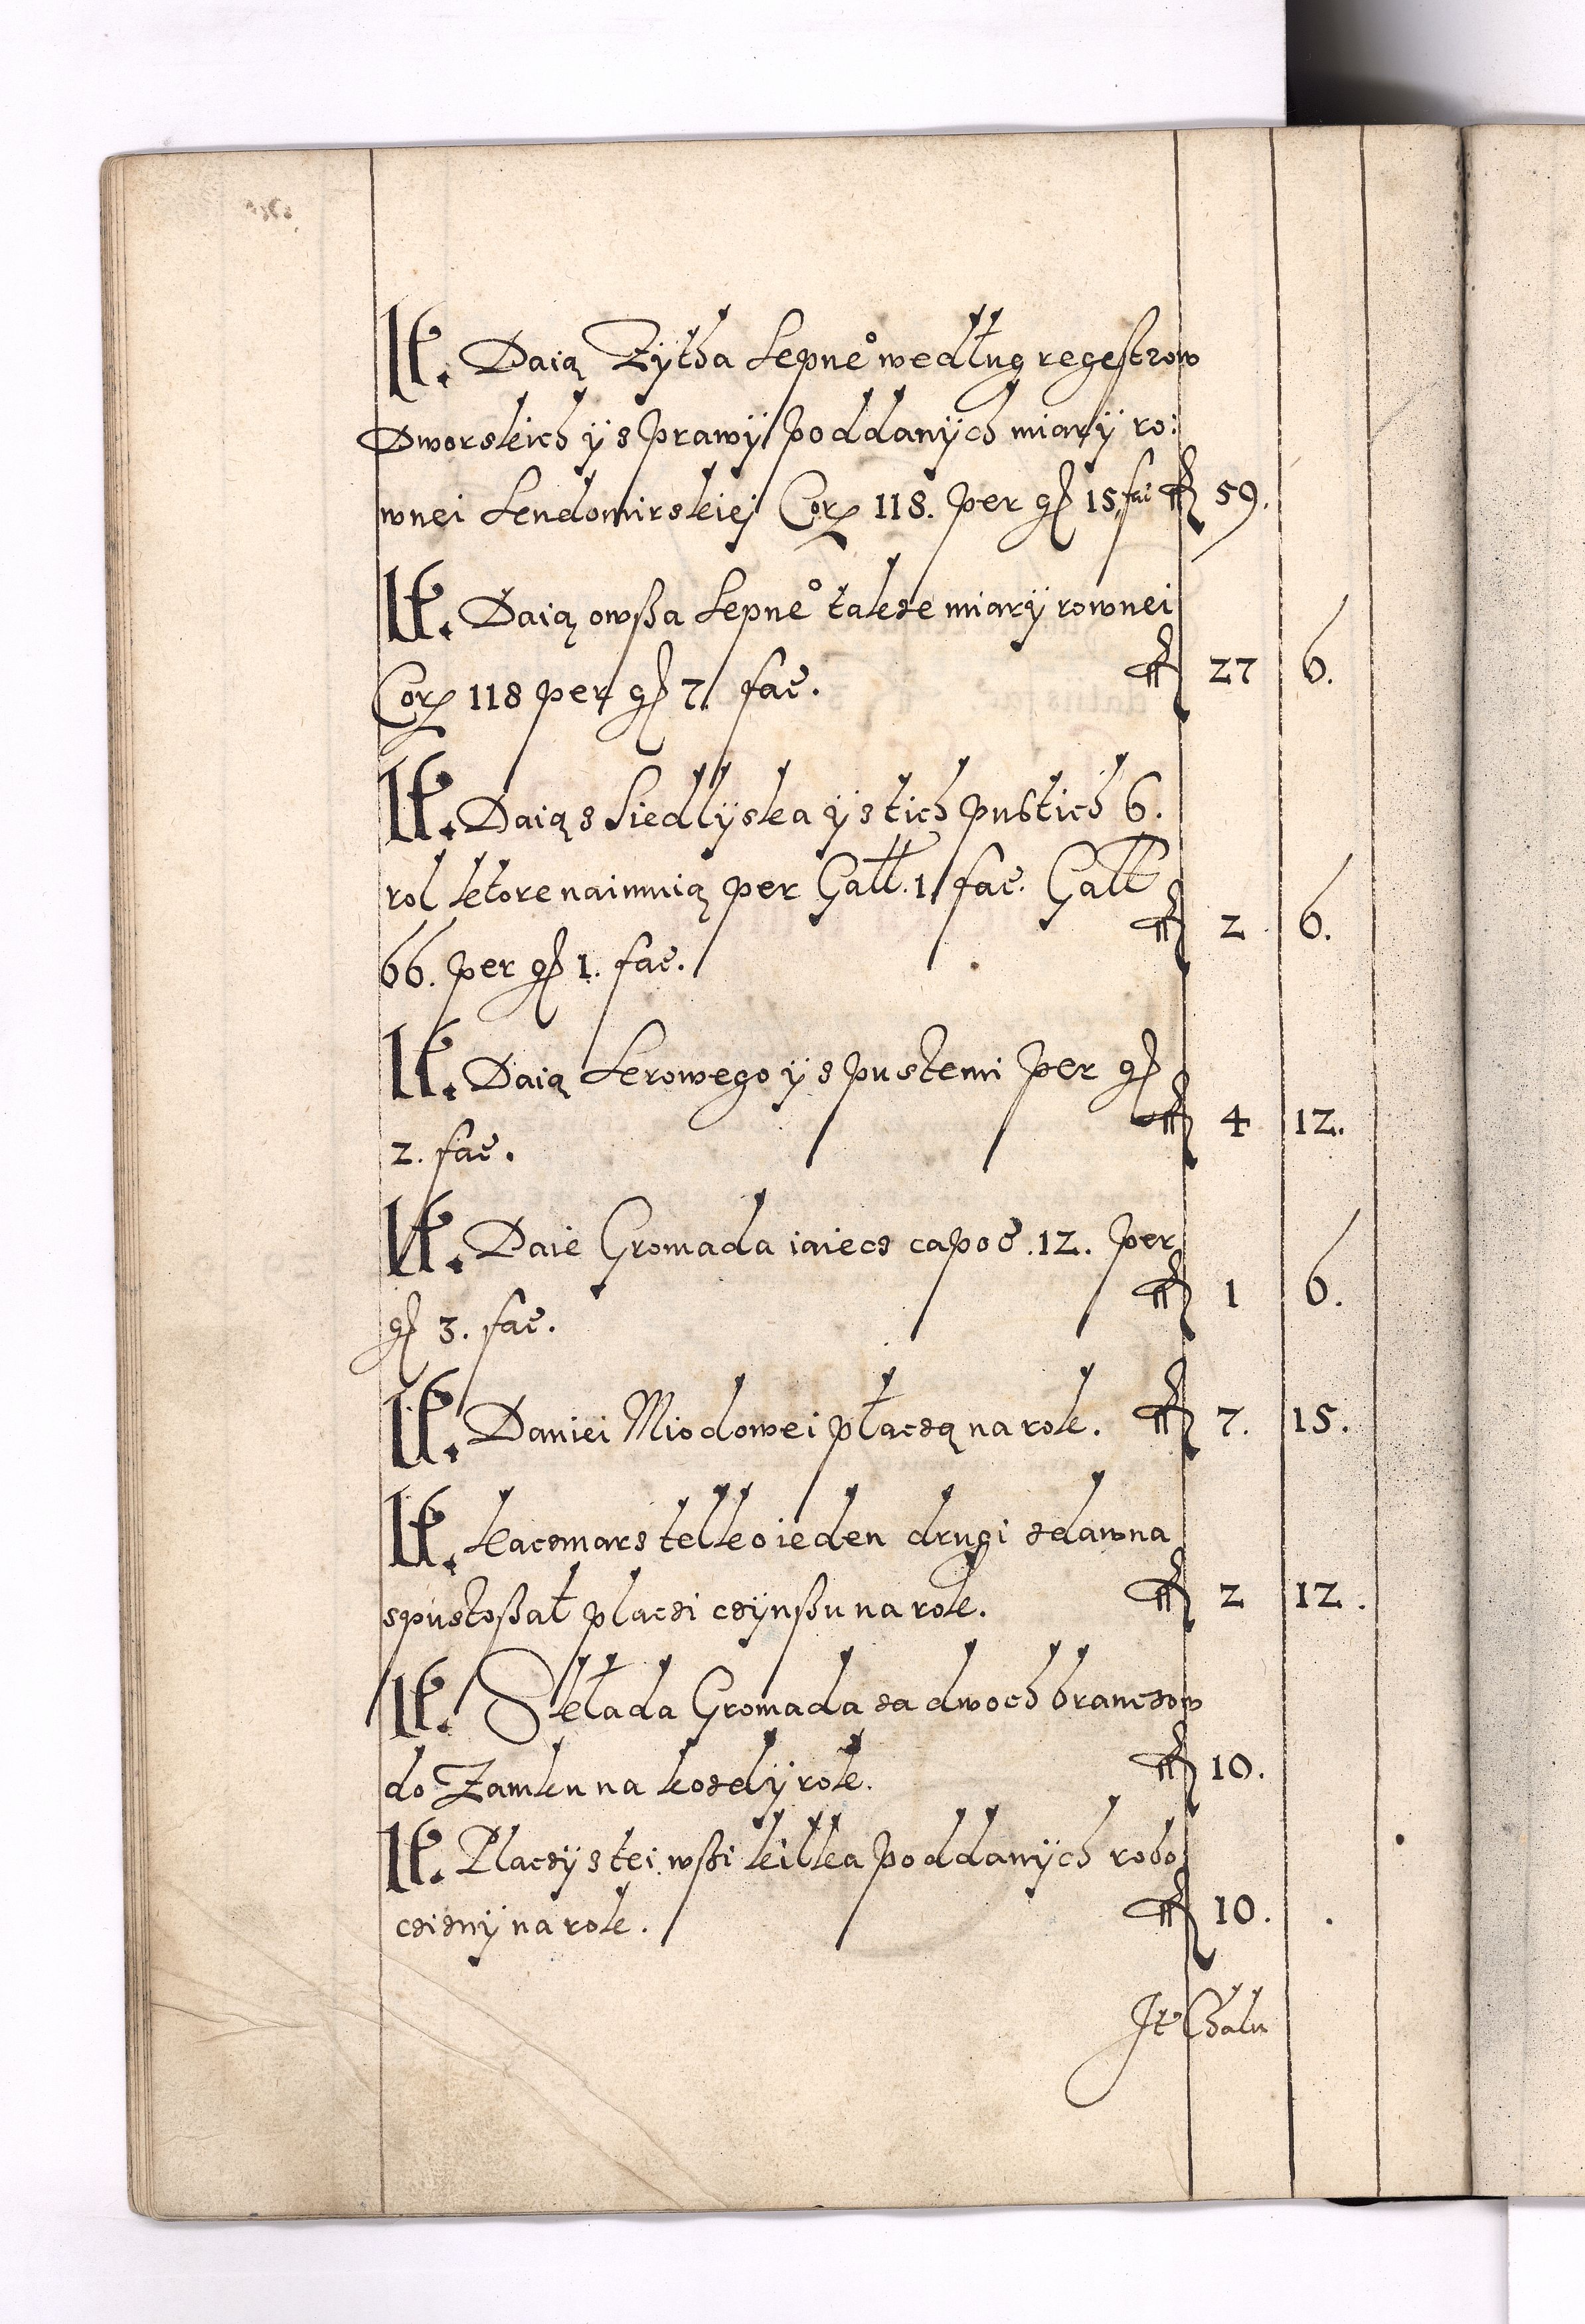 It. Daią Zytha Sepne° według regestrow
Dworskich ÿ sprawÿ poddanÿch miarÿ ro:
wnei Sendomirskiej Corz 118. per gr 15 fac fl 59.
It. Daią owßa Sepne° takze miarÿ rownei
Corz 118 per gr 7 fac. fl 27 6.
It. Daią s Siedlÿska ÿ s tich pustich 6.
rol ktore naimuią per Gall. 1 fac. Gall
66. per gr 1. fac. fl 2 6.
It. Daią Serowego ÿ s pustemi per gr
2. fac. fl 4 12.
It. Daie Gromada iaiecz capoe. 12. per
gr 3. fac. fl 1 6.
It. Daniei Miodowei płaczą na rok. fl 7. 15.
It. kaczmarz telko ieden drugi zdawna
spustoßał placzi czÿnßu na rok. fl 2 12.
It. Składa Gromada za dwoch brańczow
do Zamku na kozdÿ rok. fl 10.
It. Placzÿ s tei wßi kilka poddanÿch robo
cziznÿ na rok. fl 10. .
Ite Chału